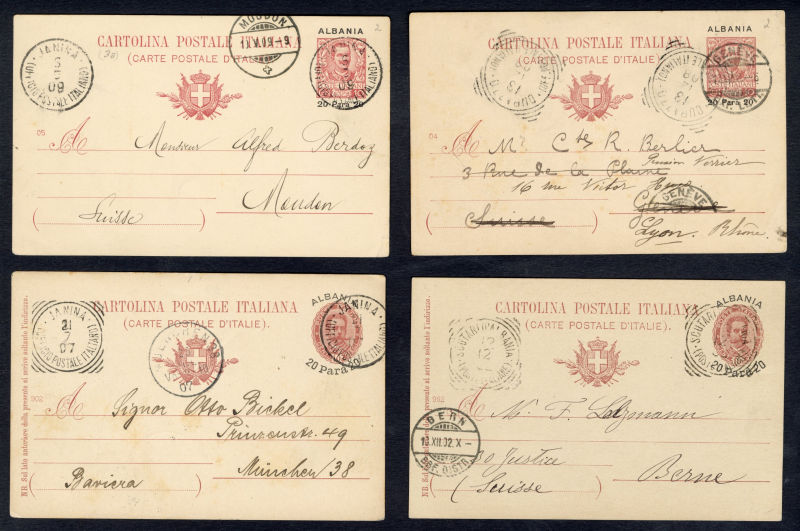 ALBANIA
CARTOLINA POSTALE ITALIANA
(CARTE POSTALE D'ITALIE)
20 Para 20
MOUDON
JANINA
09
(UFFICIO POSTALE ITALIANO)
05
A
Monsieur Alfred Berdoz
Moudon
Suisse
2
ALBANIA
CARTOLINA POSTALE ITALIANA
(CARTE POSTALE D'ITALIE)
20 Para 20
DURAZZO
GENÈVE
04
A
Mr Cte R. Berlier
3 Rue de la Plaine
Pension Verrier
16 rue Victor
Genève
GENÈVE
Suisse
Lyon. Rhône.
2
ALBANIA
CARTOLINA POSTALE ITALIANA
(CARTE POSTALE D'ITALIE).
20 Para 20
JANINA
21
07
(UFFICIO POSTALE ITALIANO)
902
NB. Sul lato anteriore della presente si scrive soltanto l'indirizzo.
A
Signor Otto Bickel
Prinzenstr. 49
München 38
Baviera
ALBANIA
CARTOLINA POSTALE ITALIANA
(CARTE POSTALE D'ITALIE).
20 Para 20
SCUTARI
BERN
13.XII.02.X-
BRF. DISTR.
NB. Sul lato anteriore della presente si scrive soltanto l'indirizzo.
A
M. F.
Justice
Berne
(Suisse